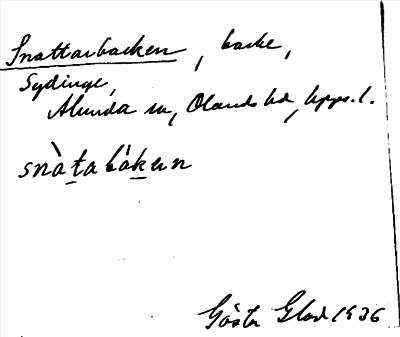 Snattarbacken, backe,
Sydinge,
Alunda sn, Olands hd, Upps. l.
snàtabákern
Gösta Glad 1936